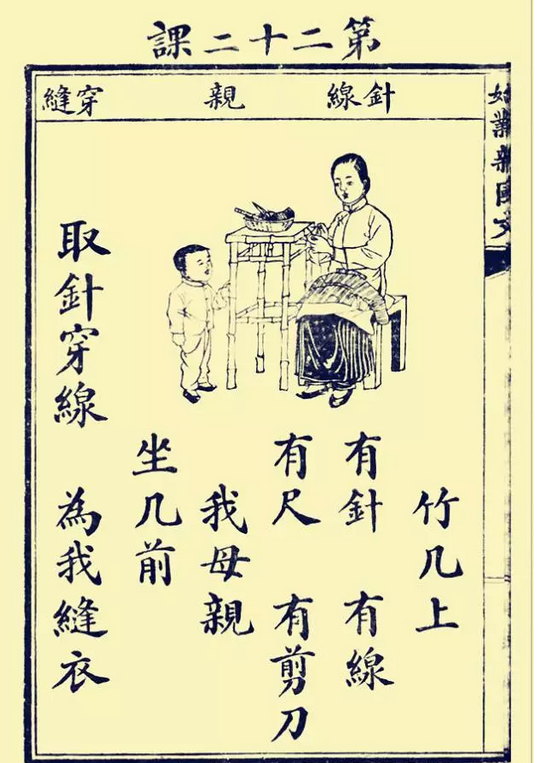 第二十二課
針線 親 穿縫
竹几上
有針 有線
有尺 有剪刀
我母親
坐几前
取針穿線 為我縫衣